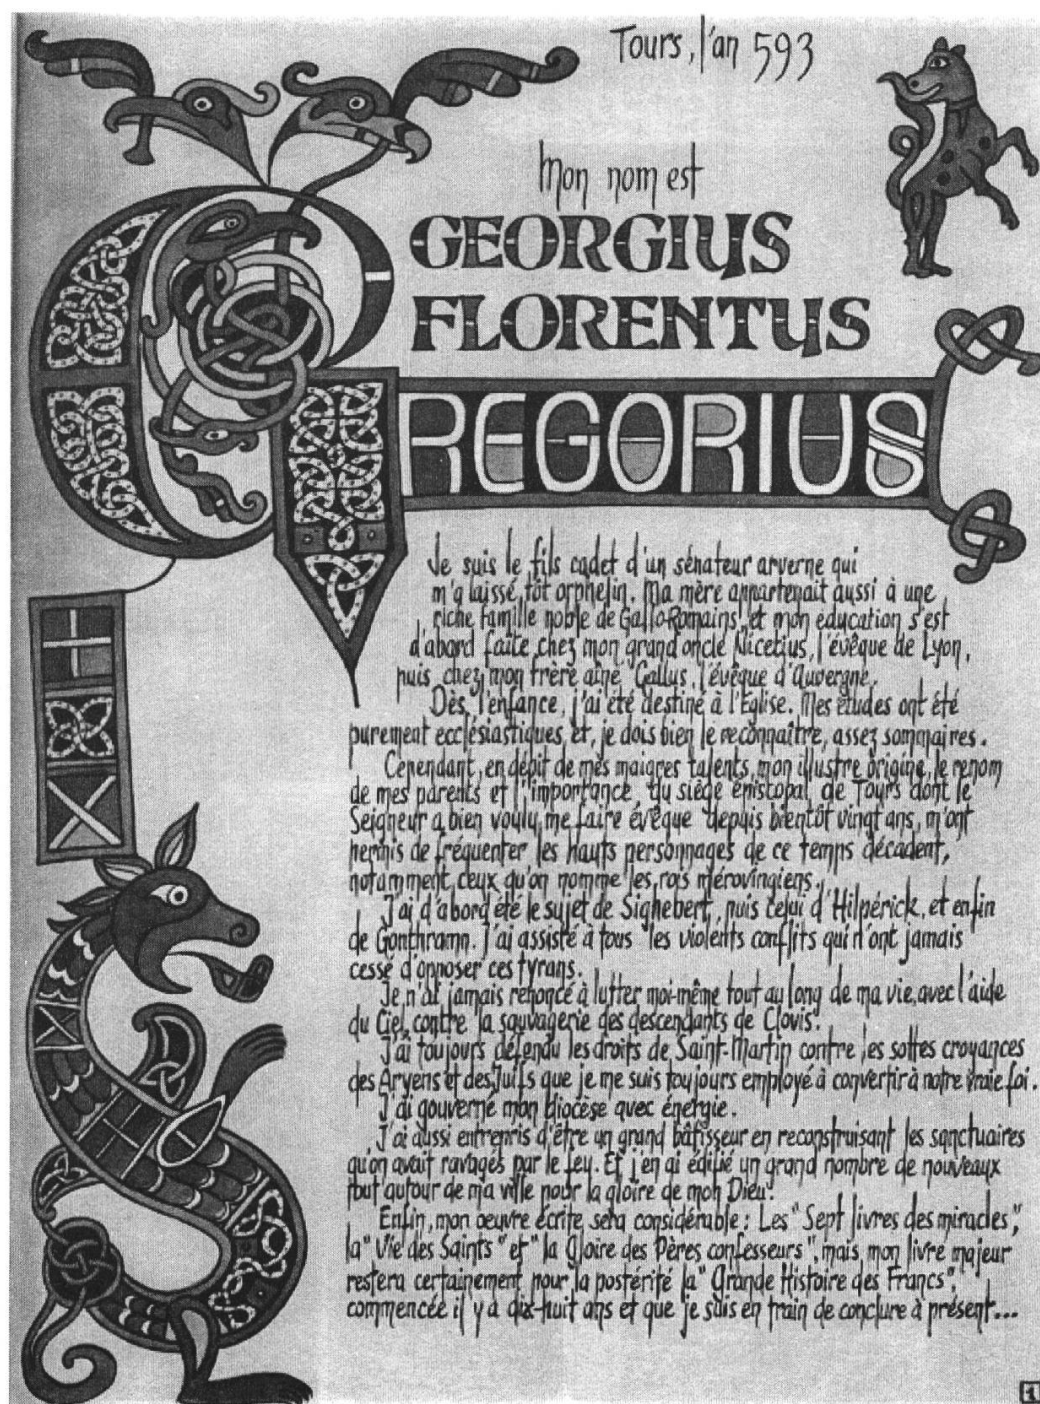 Tours, l'an 593
Mon nom est
GEORGIUS
FLORENTUS
GREGORIUS
Je suis le fils cadet d'un sénateur arverne qui
m'a laissé tôt orphelin. Ma mère appartenait aussi à une
riche famille noble de Gallo-Romains, et mon éducation s'est
d'abord faite chez mon grand oncle Nicetius, l'évêque de Lyon,
puis chez mon frère aîné Gallus, l'évêque d'Auvergne.
Dès l'enfance, j'ai été destiné à l'Église. Mes études ont été
purement ecclésiastiques et, je dois bien le reconnaître, assez sommaires.
Cependant, en dépit de mes maigres talents, mon illustre origine, le renom
de mes parents et l'importance du siège épiscopal de Tours dont le
Seigneur a bien voulu me faire évêque depuis bientôt vingt ans, m'ont
permis de fréquenter les hauts personnages de ce temps décadent,
notamment ceux qu'on nomme les rois mérovingiens.
J'ai d'abord été le sujet de Sighebert, puis celui d'Hilpérick, et enfin
de Gonthramn. J'ai assisté à tous les violents conflits qui n'ont jamais
cessé d'opposer ces tyrans.
Je n'ai jamais renoncé à lutter moi-même tout au long de ma vie, avec l'aide
du Ciel, contre la sauvagerie des descendants de Clovis.
J'ai toujours défendu les droits de Saint-Martin contre les sottes croyances
des Aryens et des Juifs que je me suis toujours employé à convertir à notre vraie foi.
J'ai gouverné mon diocèse avec énergie.
J'ai aussi entrepris d'être un grand bâtisseur en reconstruisant les sanctuaires
qu'on avait ravagés par le feu. Et j'en ai édifié un grand nombre de nouveaux
tout autour de ma ville pour la gloire de mon Dieu.
Enfin, mon oeuvre écrite sera considérable : Les "Sept livres des miracles",
la "Vie des Saints" et "la Gloire des Pères confesseurs", mais mon livre majeur
restera certainement pour la postérité la "Grande Histoire des Francs",
commencée il y a dix-huit ans et que je suis en train de conclure à présent...
1